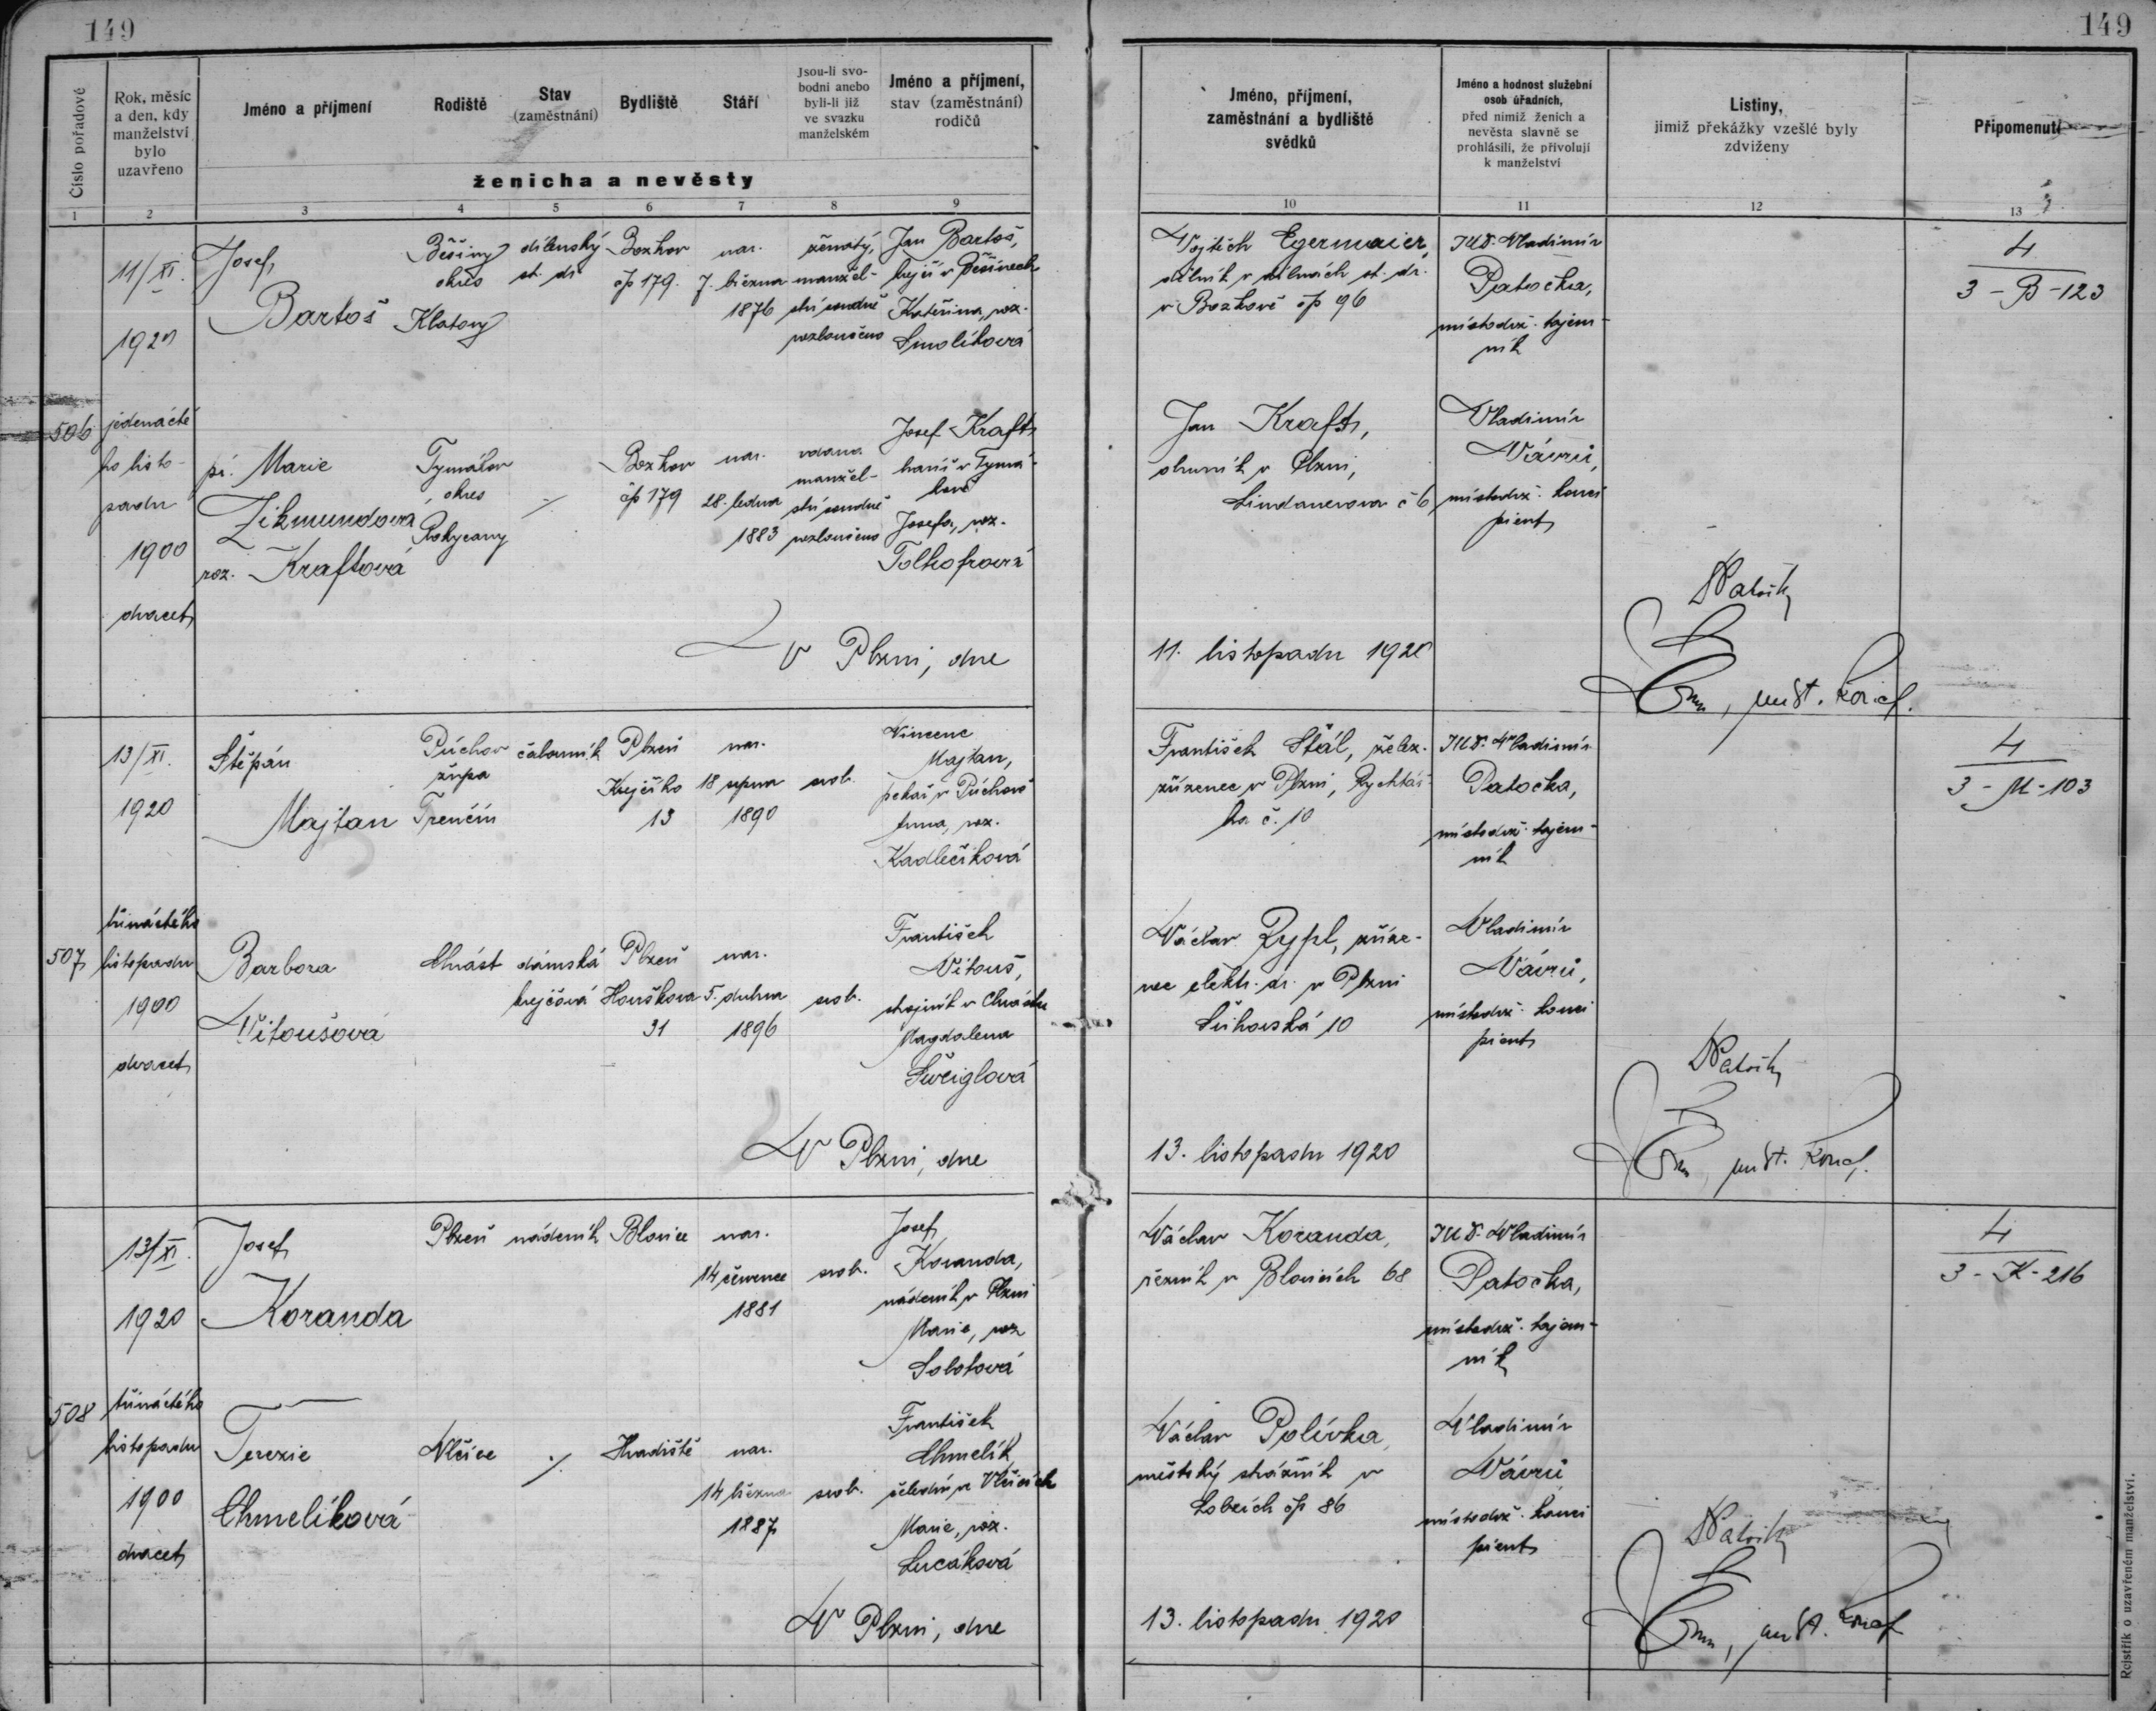 149
149
Číslo pořadové
Rok, měsíc
a den, kdy
manželství
bylo
uzavřeno
Jméno a příjmení
Rodiště
Stav
(zaměstnání)
Bydliště
Stáří
Jsou-li svo-
bodni anebo
byli-li již
ve svazku
manželském
Jméno a příjmení,
stav (zaměstnání)
rodičů
ženicha a nevěsty
Jméno, příjmení,
zaměstnání a bydliště
svědků
Jméno a hodnost služební
osob úřadních,
před nimiž ženich a
nevěsta slavně se
prohlásili, že přivolují
k manželství
Listiny,
jimiž překážky vzešlé byly
zdviženy
Připomenutí
1 2 3 4 5 6 7 8 9 10 11 12 13
11/XI.
1920
Josef
Bartoš
Běšiny
okres
Klatovy
dílenský
st. dr.
Bozkov
čp 179.
nar.
7. března
1876
ženatý,
manžel-
ství soudně
rozloučeno
Jan Bartoš,
krejčí v Běšinech
Kateřina, roz.
Smolíková
Vojtěch Egermaier,
dělník v dílnách st. dr.
v Bozkově čp 96
JUDr. Vladimír
Patočka,
místodrž. tajem-
ník
4
3-B-123
506
jedenácté
ho listo-
padu
1900
dvacet
pí. Marie
Zikmundová
roz. Kraftová
Tymákov
okres
Rokycany
./.
Bozkov
čp 179
nar.
28. ledna
1883
vdaná
manžel-
ství soudně
rozloučeno
Josef Kraft
havíř v Tymá-
kově
Josefa, roz.
Tolhofrová
Jan Kraft,
obuvník v Plzni,
Lindauerova č 6
Vladimír
Vávrů,
místodrž. konci
pient
V Plzni, dne
11. listopadu 1920
13/XI.
1920
Štěpán
Majtan
Púchov
župa
Trenčín
čalouník
Plzeň
Krejčíko
13
nar.
18 srpna
1890
svob.
Vincenc
Majtan,
pekař v Púchově
Anna, roz.
Kadlečíková
František Štál, želez.
zřízenec v Plzni, Rychtář-
ka č. 10
JUDr. Vladimír
Patočka,
místodrž. tajem-
ník
4
3-M-103
507
třináctého
listopadu
1900
dvacet
Barbora
Vitoušová
Chrást
dámská
krejčová
Plzeň
Houškova
31
nar.
5. dubna
1896
svob.
František
Vitouš,
strojník v Chrástu
Magdalena
Šweiglová
Václav Zypl, zříze-
nec elektr. dr. v Plzni
Lúhovská 10
Vladimír
Vávrů,
místodrž. konci
pient
V Plzni, dne
13. listopadu 1920
13/XI.
1920
Josef
Koranda
Plzeň
nádeník
Blovice
nar.
14 července
1881
svob.
Josef
Koranda,
nádeník v Plzni
Marie, roz
Solotová
Václav Koranda,
řezník v Blovicích 68
JUDr. Vladimír
Patočka,
místodrž. tajem-
ník
4
3-K-216
508
třináctého
listopadu
1900
dvacet
Terezie
Chmelíková
Vlčice
./.
Hradiště
nar.
14 března
1887
svob.
František
Chmelík,
čeledín v Vlčicích
Marie, roz.
Lucáková
Václav Polívka,
městský strážník v
Lobzích čp 86
Vladimír
Vávrů
místodrž. konci
pient
V Plzni, dne
13. listopadu 1920
Rejstřík o uzavřeném manželství.